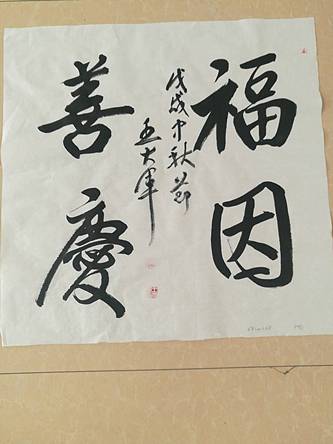 福因
善慶
戊戌中秋節
王大军